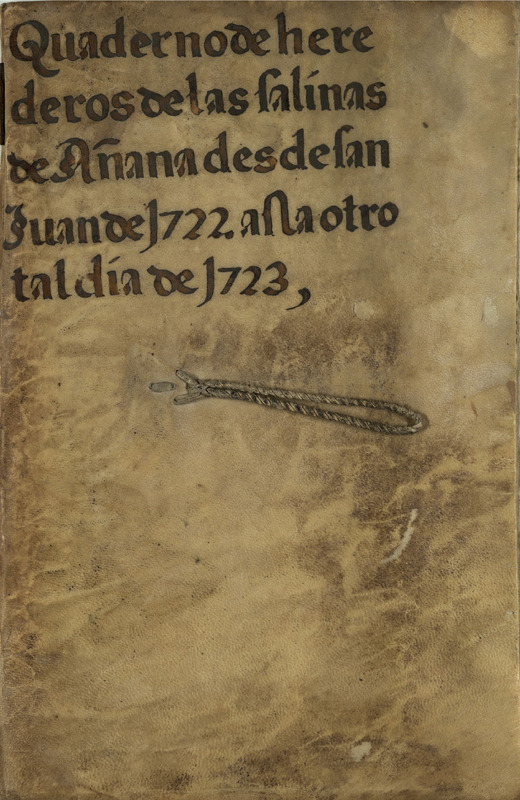 Quaderno de here
deros de las salinas
de Añana desde san
Juan de 1722. asta otro
tal dia de 1723,